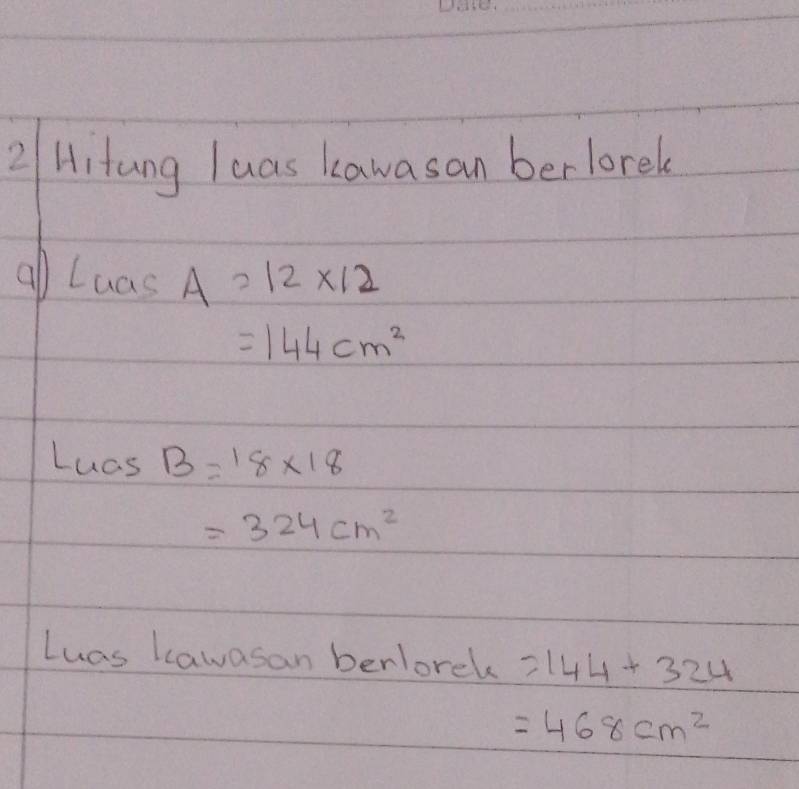 Date:
2 Hitung luas kawasan berlorek
a) Luas A = 12 x 12
= 144 cm²
Luas B = 18 x 18
= 324 cm²
Luas kawasan berlorek = 144 + 324
= 468 cm²